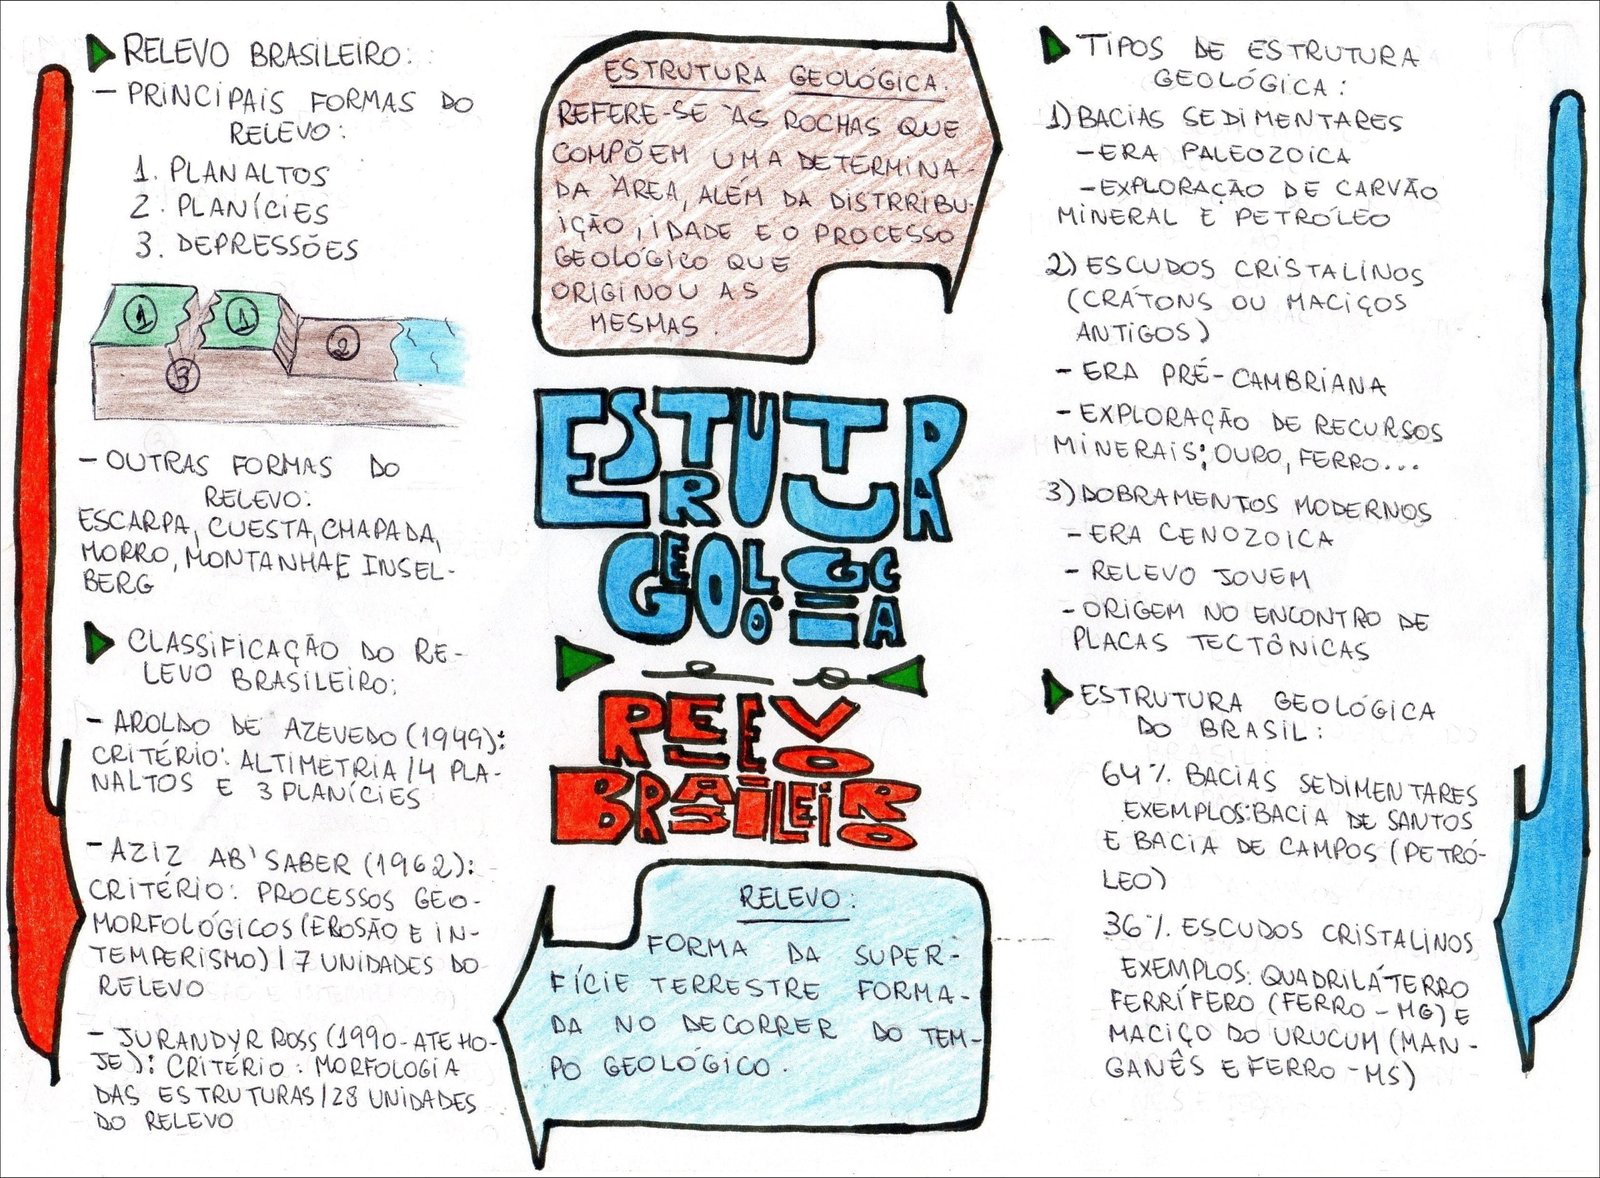 RELEVO BRASILEIRO:
- PRINCIPAIS FORMAS DO
RELEVO:
1. PLANALTOS
2. PLANÍCIES
3. DEPRESSÕES
1
1
2
3
- OUTRAS FORMAS DO
RELEVO:
ESCARPA, CUESTA, CHAPADA,
MORRO, MONTANHA E INSEL-
BERG
CLASSIFICAÇÃO DO RE-
LEVO BRASILEIRO:
- AROLDO DE AZEVEDO (1949):
CRITÉRIO: ALTIMETRIA / 4 PLA-
NALTOS E 3 PLANÍCIES
- AZIZ AB'SABER (1962):
CRITÉRIO: PROCESSOS GEO-
MORFOLÓGICOS (EROSÃO E IN-
TEMPERISMO) / 7 UNIDADES DO
RELEVO
- JURANDYR ROSS (1990-ATE HO-
JE): CRITÉRIO: MORFOLOGIA
DAS ESTRUTURAS / 28 UNIDADES
DO RELEVO
ESTRUTURA GEOLÓGICA.
REFERE-SE ÀS ROCHAS QUE
COMPÕEM UMA DETERMINA-
DA ÀREA, ALÉM DA DISTRRIBU-
IÇÃO, IDADE E O PROCESSO
GEOLÓGICO QUE
ORIGINOU AS
MESMAS.
ESTRUTURA
GEOLÓGICA
RELEVO
BRASILEIRO
RELEVO:
FORMA DA SUPER-
FÍCIE TERRESTRE FORMA-
DA NO DECORRER DO TEM-
PO GEOLÓGICO.
TIPOS DE ESTRUTURA
GEOLÓGICA:
1) BACIAS SEDIMENTARES
- ERA PALEOZOICA
- EXPLORAÇÃO DE CARVÃO
MINERAL E PETRÓLEO
2) ESCUDOS CRISTALINOS
(CRÁTONS OU MACIÇOS
ANTIGOS)
- ERA PRÉ-CAMBRIANA
- EXPLORAÇÃO DE RECURSOS
MINERAIS; OURO, FERRO...
3) DOBRAMENTOS MODERNOS
- ERA CENOZOICA
- RELEVO JOVEM
- ORIGEM NO ENCONTRO DE
PLACAS TECTÔNICAS
ESTRUTURA GEOLÓGICA
DO BRASIL:
64% BACIAS SEDIMENTARES
EXEMPLOS: BACIA DE SANTOS
E BACIA DE CAMPOS (PETRÓ-
LEO)
36% ESCUDOS CRISTALINOS
EXEMPLOS: QUADRILÁTERRO
FERRÍFERO (FERRO - MG) E
MACIÇO DO URUCUM (MAN-
GANÊS E FERRO - MS)